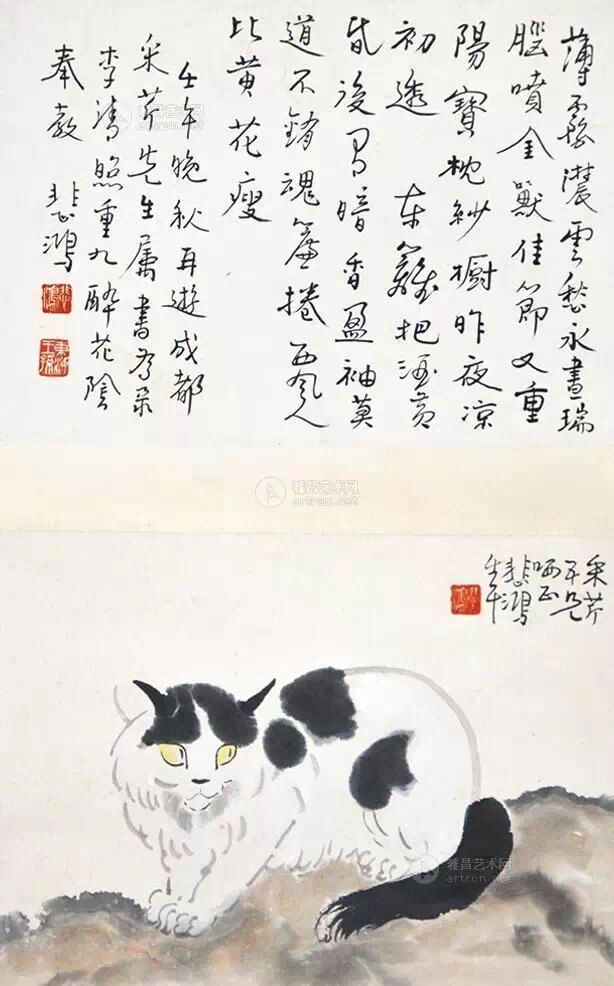 薄霧濃雲愁永晝瑞
腦噴金獸佳節又重
陽寶枕紗橱昨夜涼
初透 東籬把酒黃
昏後有暗香盈袖莫
道不銷魂簾捲西風人
比黃花瘦
壬午晚秋再遊成都
采芹先生屬書為录
李清照重九醉花陰
奉教 悲鴻
悲鴻
東海王孫
雅昌艺术网
artron.net
采芹
吾兄
哂正
悲鴻
壬午
雅昌艺术网
artron.net